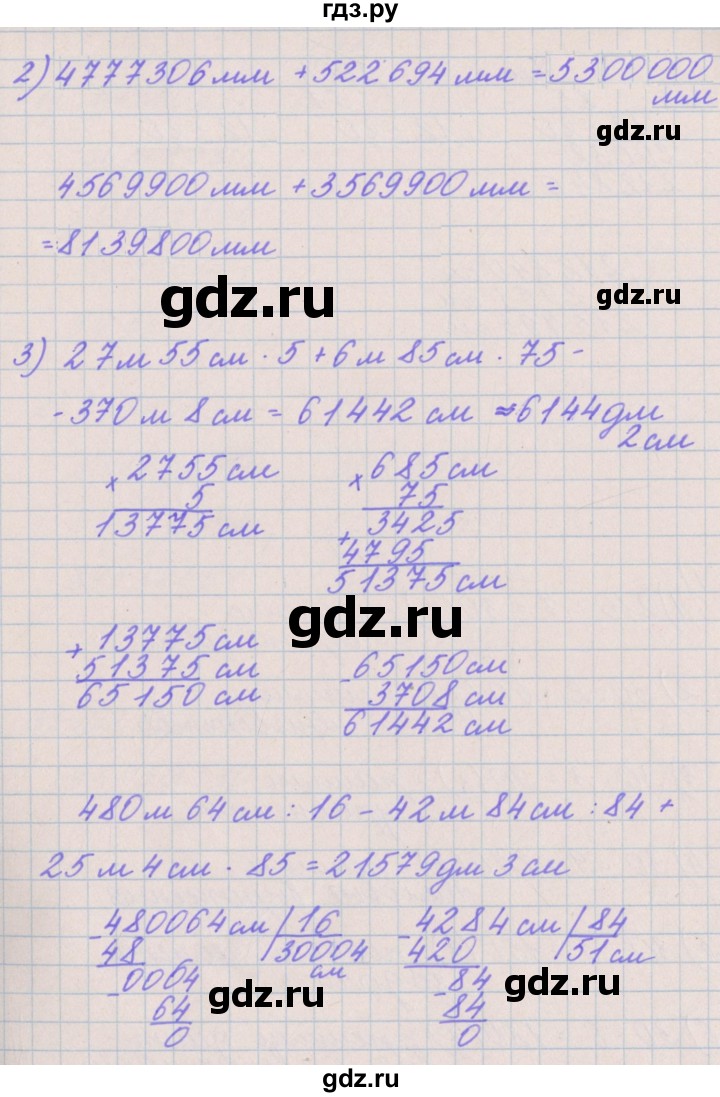 гдз.ру
2) 4777306 мм + 522694 мм = 5300000
мм
gdz.ru
4569900 мм + 3569900 мм =
= 8139800 мм
gdz.ru
gdz.ru
3) 27 м 55 см · 5 + 6 м 85 см · 75 -
- 370 м 8 см = 61442 см = 6144 дм
2 см
× 2755 см
5
13775 см
× 685 см
75
3425
+
4795
51375 см
gdz.ru
+ 13775 см
51375 см
65150 см
- 65150 см
3708 см
61442 см
480 м 64 см : 16 - 42 м 84 см : 84 +
25 м 4 см · 85 = 21579 дм 3 см
- 480064 см | 16
48 30004
см
- 0064
64
0
- 4284 см | 84
420 51 см
- 84
84
0
gdz.ru
gdz.ru
gdz.ru